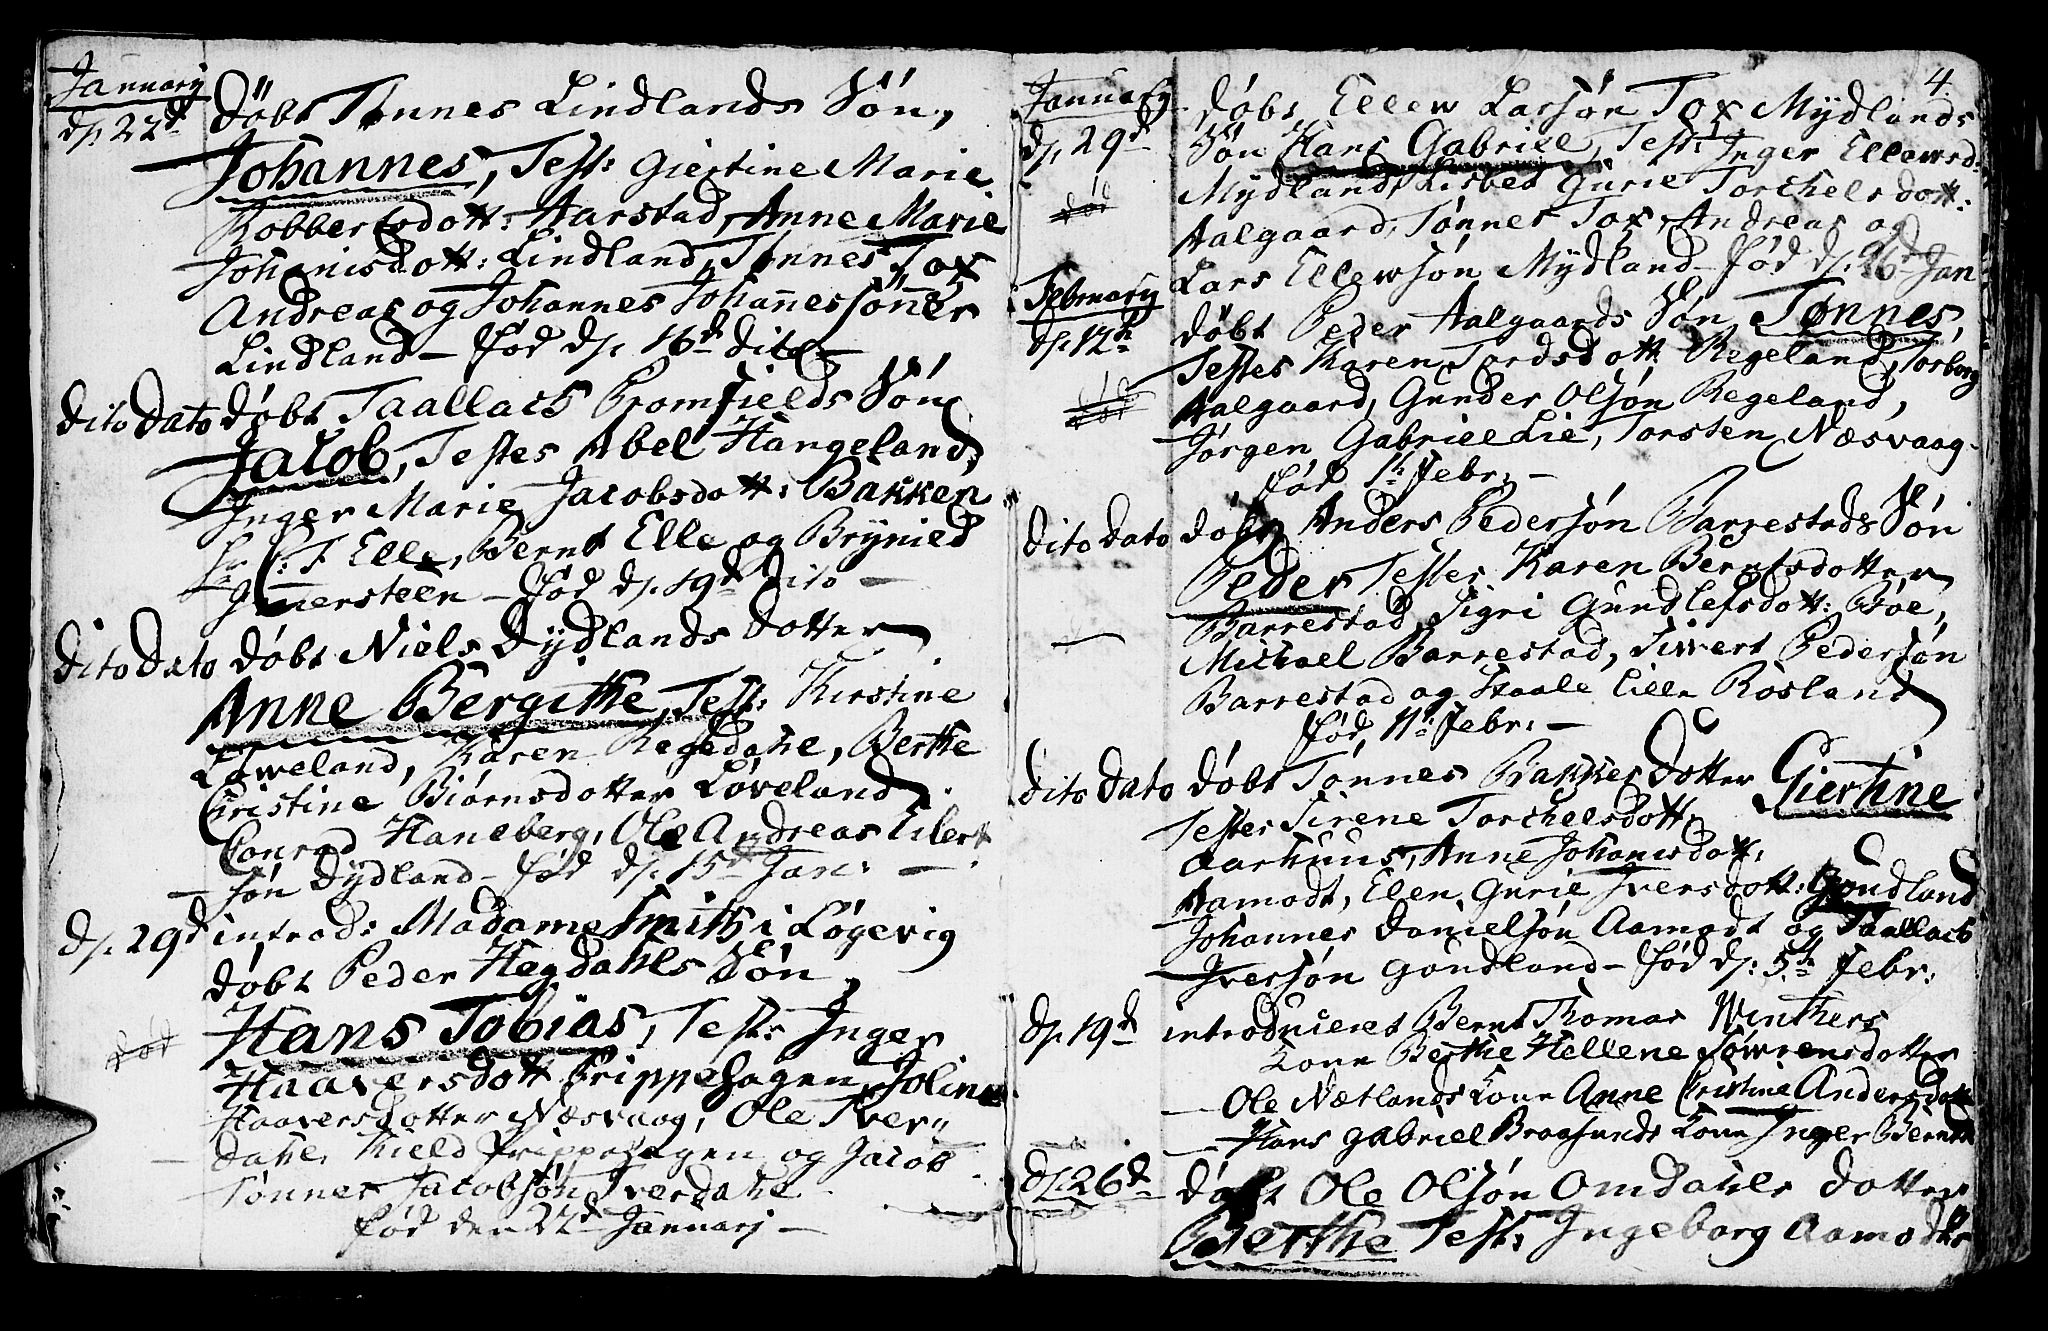 January
d. 22d døbt Tønnes Lindlands Søn,
Johannes, Test: Giertine Marie
Robbertsdott: Aarstad, Anne Marie
Johanisdott: Lindland, Tønnes Tox
Andreas og Johannes Johannessønner
Lindland – fød d. 16d dito –
dito dato døbt Taallach Bromfields Søn
Jacob, Testes Abel Hangeland,
Inger Marie Jacobsdott: Bakken
Hr C: F Elle, Bernt Elle og Bryniel
Immersteen – fød d. 19d dito –
dito dato døbt Niels Dydlands dotter
Anne Bergithe, Test: Kirstine
Løweland, Karen Regedahe, Berthe
Cristine Biørnsdotter Løveland
Conrad Haneberg, Ole Andreas Eilert
søn Dydland – fød d. 15de Jan: –
d. 29d introd: Madame Smith i Løgevig
døbt Peder Hegdahls Søn,
Hans Tobias, Test: Inger
død
Haaversdott Trippehagen, Joline
Haaversdotter Næsvaag, Ole Tver„
dahe, Kield Trippehagen og Jacob
Tønnes Jacobsøn Tverdahe
fød den 22d January –
4.
January
d. 29d døbt Ellew Larsøn Tox Mydlands
Søn Hans Gabriel, Test: Inger Ellewsd:
Mydland, Lisbet Gurie Torchelsdott:
død
Aalgaard, Tønnes Tox, Andreas og
Lars Ellewsøn Mydland – fød d. 26d Jan
February
d. 12te døbt Peder Aalgaards Søn Tønnes,
Testes Karen Tordsdott Regeland, Torborg
død
Aalgaard, Gunder Olsøn Regeland,
Jørgen Gabriel Lie, Torsten Næsvaag
fød 1te Febr: –
dito dato døbt Anders Pedersøn Barrestads Søn
Peder Testes Karen Berntsdotter
Barrestad, Sigri Gundlefsdott: Bøe,
Michael Barrestad, Siwert Pedersøn
Barrestad og Staale Lille Rosland
fød 11te Febr: –
dito dato døbt Tønnes Bakkes dotter Giertine
Testes Sirene Torchelsdott:
Aarhuus, Anne Johanisdott:
Aamodt, Elen Gurie Iversdott: Gondland
Johannes Danielsøn Aamodt og Taallach
Iversøn Gondland – fød d: 5te Febr:
d. 19d introduceret Bernt Thomas Winthers
Kone Berthe Hellene Søwrensdotter
– Ole Nætlands Kone Anne Cristine Andersdott
– Hans Gabriel Braasunds Kone Inger Berntd
d. 26d døbt Ole Olsøn Omdahls dotter
Berthe Test: Ingeborg Aamodt